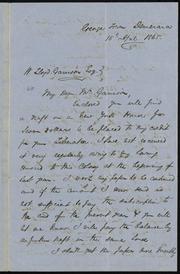 George Town Demerara
18th April 1865.
W. Lloyd Garrison Esq.
My Dear Mr. Garrison,
Enclosed you will find
a draft on a New York House for
Seven dollars to be placed to my credit
for your Liberator. I have not received
it very regularly owing to my having
the Colony at the beginning of
last year. I wish my paper to be continued
and if the amount I now send is
not sufficient to pay the subscription to
the end of the present year & you will
let me know I will pay the balance by
draft in the same House
I shall get the paper more directly